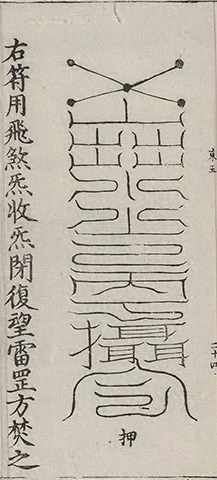 右符用飛煞炁收炁閉復望雷罡方焚之
押
二十四